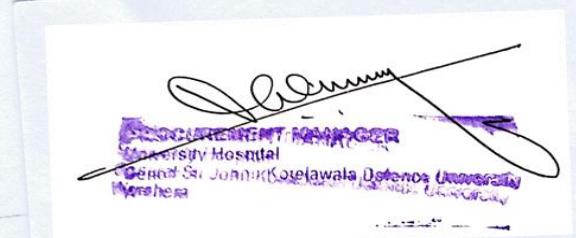 PROCUREMENT MANAGER
University Hospital
General Sir John Kotelawala Defence University
Werahera